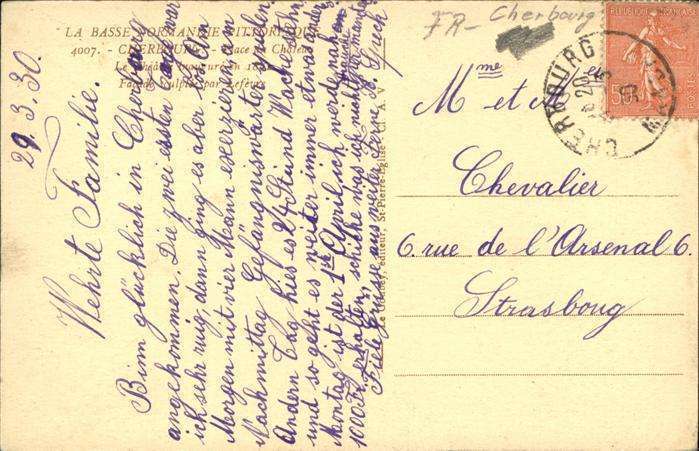 LA BASSE NORMANDIE PITTORESQUE
4007. - CHERBOURG - Place du Château
Le Théâtre inauguré en
Façade sculptée par Lefèvre
FR- Cherbourg
29.3.30.
Wehrte Familie.
Bim glücklich in Cherbourg
angekommen. Die zwei ersten war
ich sehr ruig, dann ging es aber
Morgen mit vier Mann exerzieren den
Nachmittag Gefängniswärter den
Andern Tag hies es 24 Stünd Wache
und so geht es weiter immer etwas anders
Montag ist der 1te April ich werde nahm
1000 Fr. erhalten, schicke was ich nicht
Viele Grüsse aus weiter Ferne
Le Goubey, éditeur, St-Pierre-Eglise - Cl. A. V.
Mme et M
Chevalier
6. rue de l'Arsenal 6.
Strasboug
REPUBLIQUE FRANÇAISE
50
CHERBOURG
MANCHE